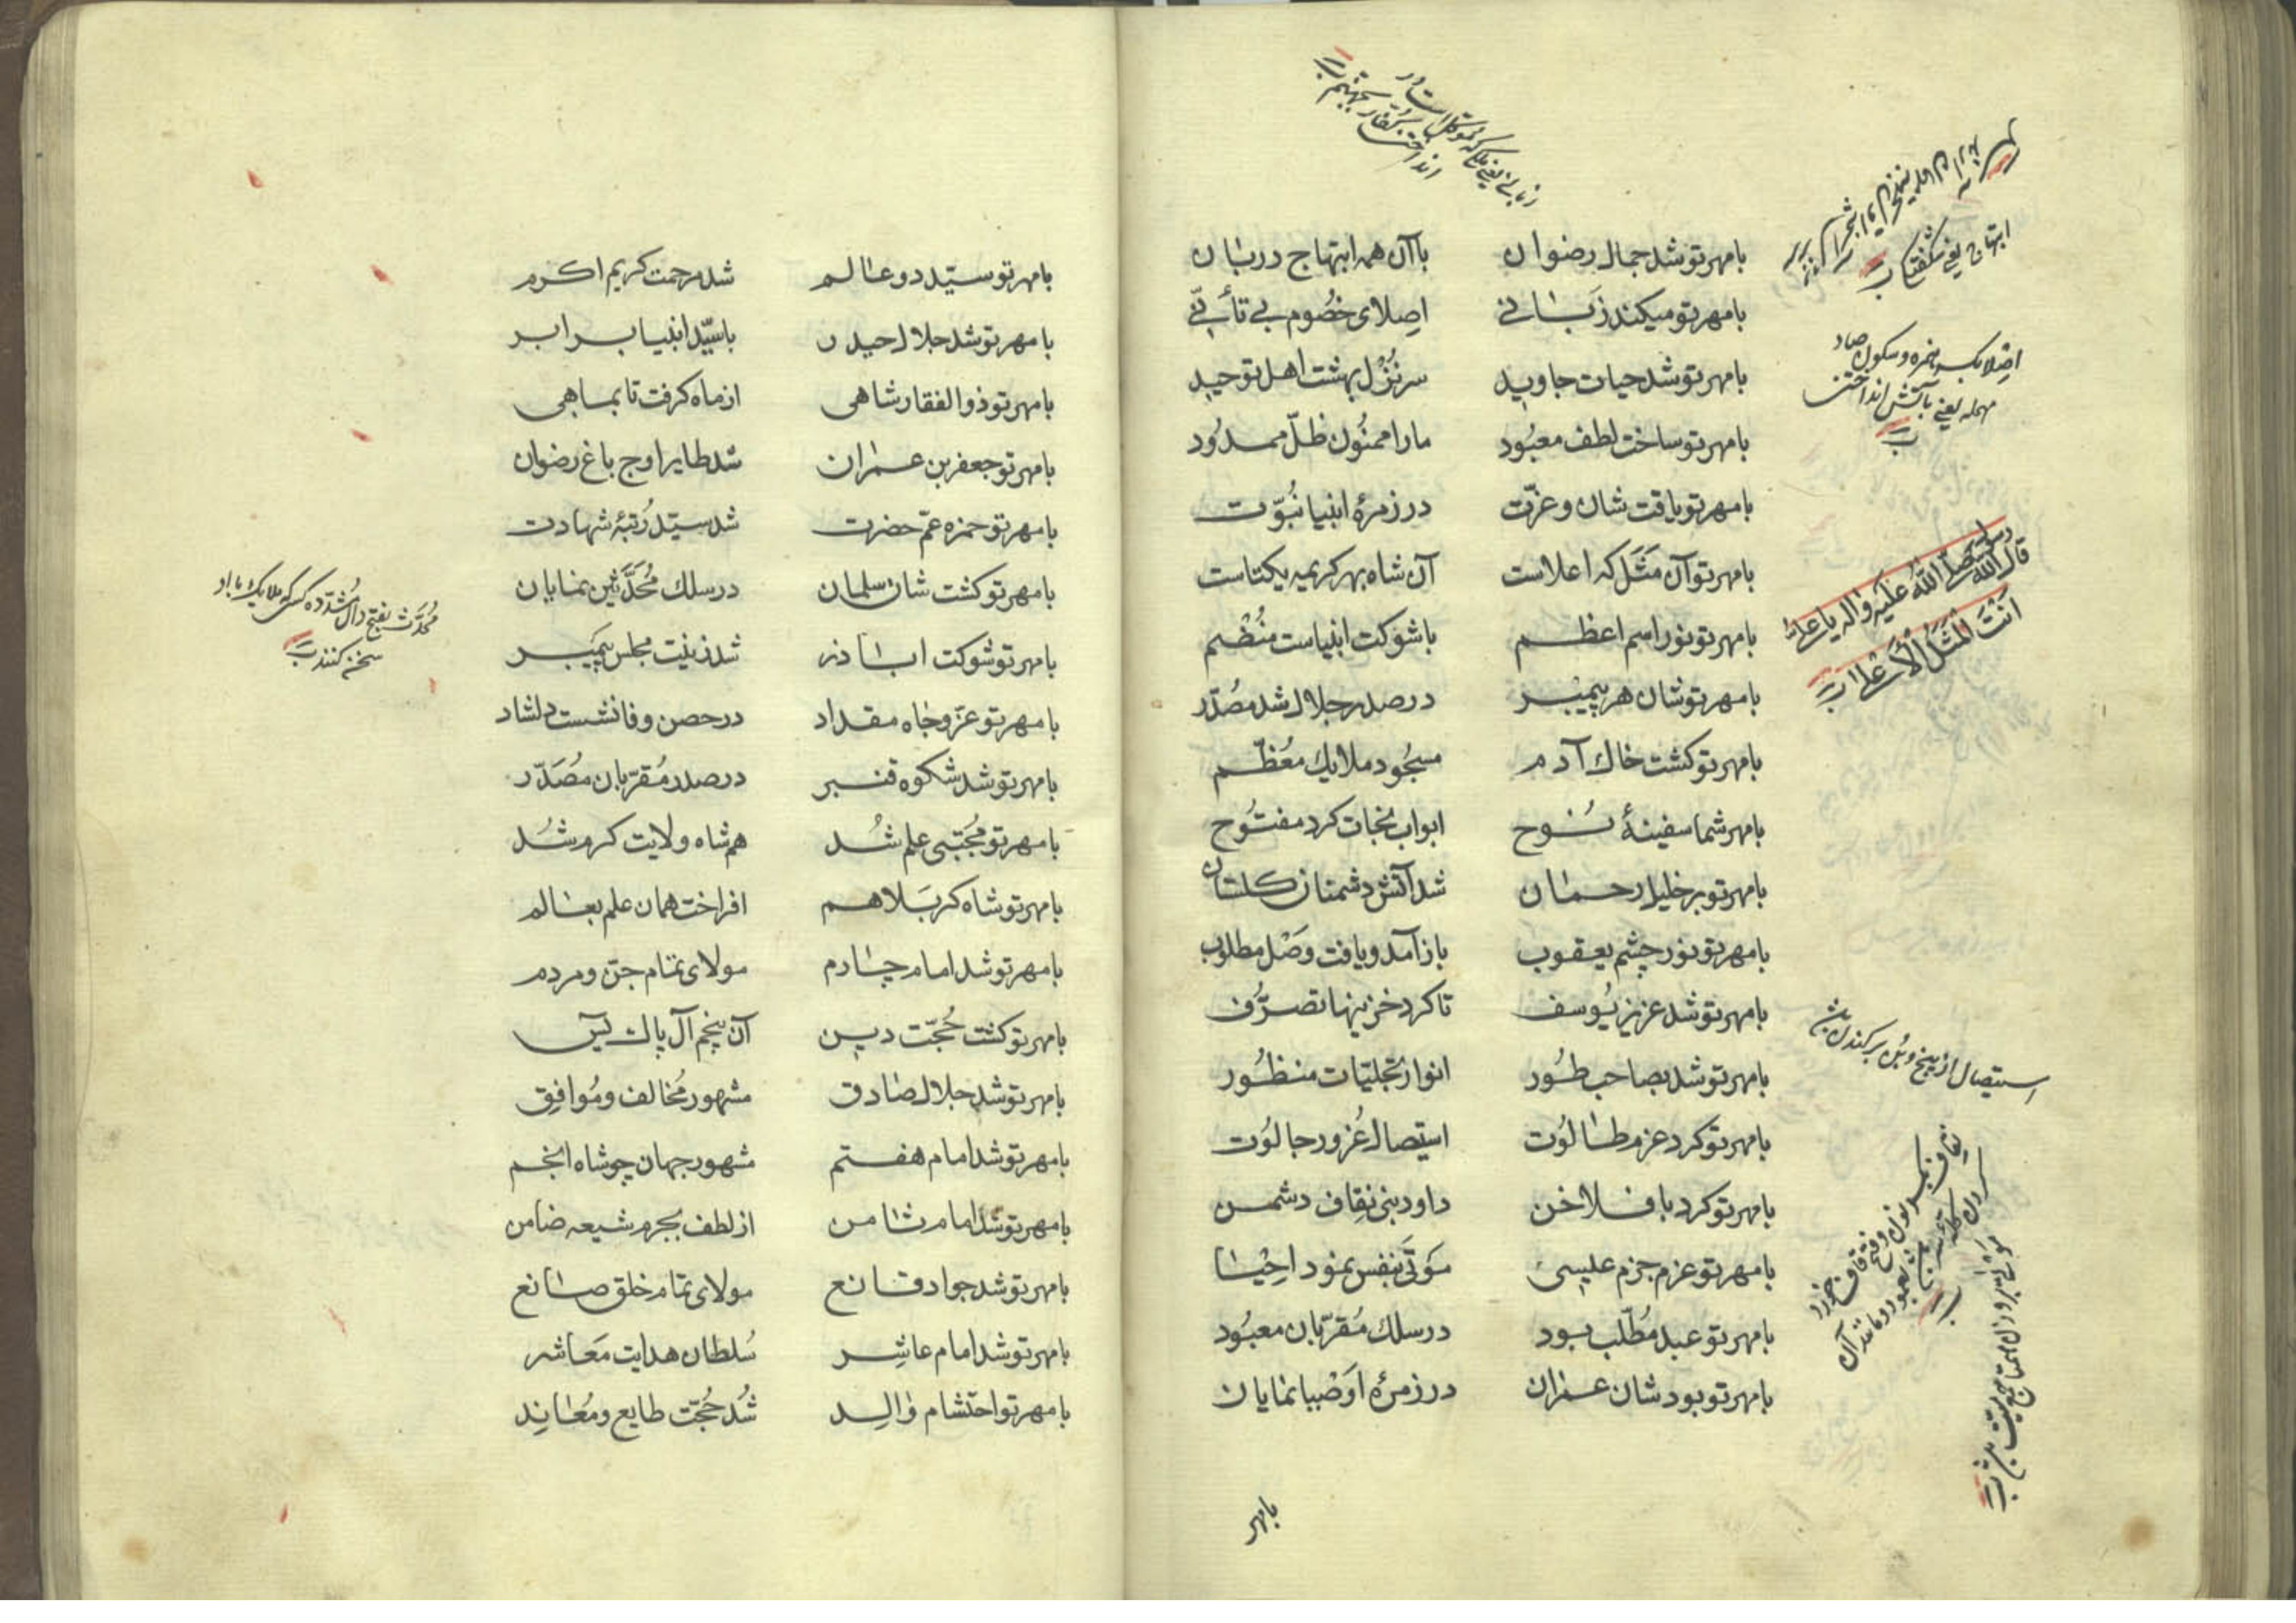 بامهر تو شد جمال رضوان باآن همه ابتهاج دربان
بامهر تو میکند زَبٰانے اِصلای خصُوم بے تأَنّے
بامهر تو شد حیات جاوید سر نُزُل بهشت اهل توحید
بامهر تو ساخت لطف معبُود مارا ممنُون ظلّ ممدُود
بامهر تو یافت شان و عزّت در زمرهٔ انبیا نُبوّت
بامهر تو آن مَثَل که اعلاست آن شاه بهر کریمه یکتاست
بامهر تو نور اسم اعظم باشوکت انبیاست مُنْضَم
بامهر تو شان هر پیمبر در صدر جلال شد مصُدّر
بامهر تو کشت خاك آدم مسجُود ملایك مُعُظّم
بامهر شما سفینهٔ نُوح ابواب نجات کرد مفتُوح
بامهر تو بر خلیل رحمٰان شد آتش دشمنان کلستان
بامهر تو نور چشم یعقوب باز آمد و یافت وَصْل مطلوب
بامهر تو شد عزیز یُوسف تا کرد خزینها تصرُّف
بامهر تو شد بصاحب طُور انوار تجلیّات منظُور
بامهر تو کرد عزم طٰالُوت استیصال غُرور جالُوت
بامهر تو کرد با فلاخن داود نبی نِقاف دشمن
بامهر تو عزم جزم عیسیٰ مَوتیٰ بنَفَس نمود احِْیٰا
بامهر تو عبد مُطّلب بود در سلك مُقرّبان معبُود
بامهر تو بود شان عمران در زمرهٔ اوَصْیا نمایان
بامهر
ابتهاج یعنی شکفتکی
اِصْلا بکسر همزه و سکون صاد
مهمله یعنے بآتش انداختن
قال رسول الله صَلّے اللهُ عَلَیهِ وَاٰله یا علی
اَنْتَ الْمَثَلُ الْاَعْلیٰ
استیصال از بیخ و بُن برکندن باشد
نِقاف بکسر نون و فتح قاف خورد
بامهر تو سیّد دو عٰالم شد مرحمت کریم اکرم
بامهر تو شد جلال حیدر باسیّد انبیا برابر
بامهر تو ذوالفقار شاهی از ماه کرفت تا بماهی
بامهر تو جعفر بن عمران شد طایر اوج باغ رضوان
بامهر تو حمزه عمّ حضرت شد سیّد رُتبهٔ شهادت
بامهر تو کشت شان سلمان در سلك مُحَدَّثین نمایان
بامهر تو شوکت ابٰا ذر شد زینت مجلس پیمبر
بامهر تو عزّ و جٰاه مقداد در حصن وفا نشست دلشاد
بامهر تو شد شکوه قنبر در صدر مُقرّبان مُصَدّر
بامهر تو مُجَتبی علم شُد هم شاه ولایت کرم شُد
بامهر تو شاه کربَلا هم افراخت همان علم بعٰالم
بامهر تو شد امام چٰارم مولای تمام جنّ و مردم
بامهر تو کشت حُجّت دین آن پنجم آل پاك یٰسٓ
بامهر تو شد جلال صٰادق مشهور مُخالف و مُوافِق
بامهر تو شد امام هفتم مشهور جهان چو شاه انجم
بامهر تو شد امام ثٰامن از لطف بجرم شیعه ضامن
بامهر تو شد جواد قانع مولای تمام خلق صٰانع
بامهر تو شد امام عاشِر سُلطان هدایت مَعَاشر
بامهر تو احتشام وٰالِد شُد حُجّت طایع و مُعٰانِد
مُحَدَّث بفتح دال مُشدّده کسی که ملایك با او
سخن کنند